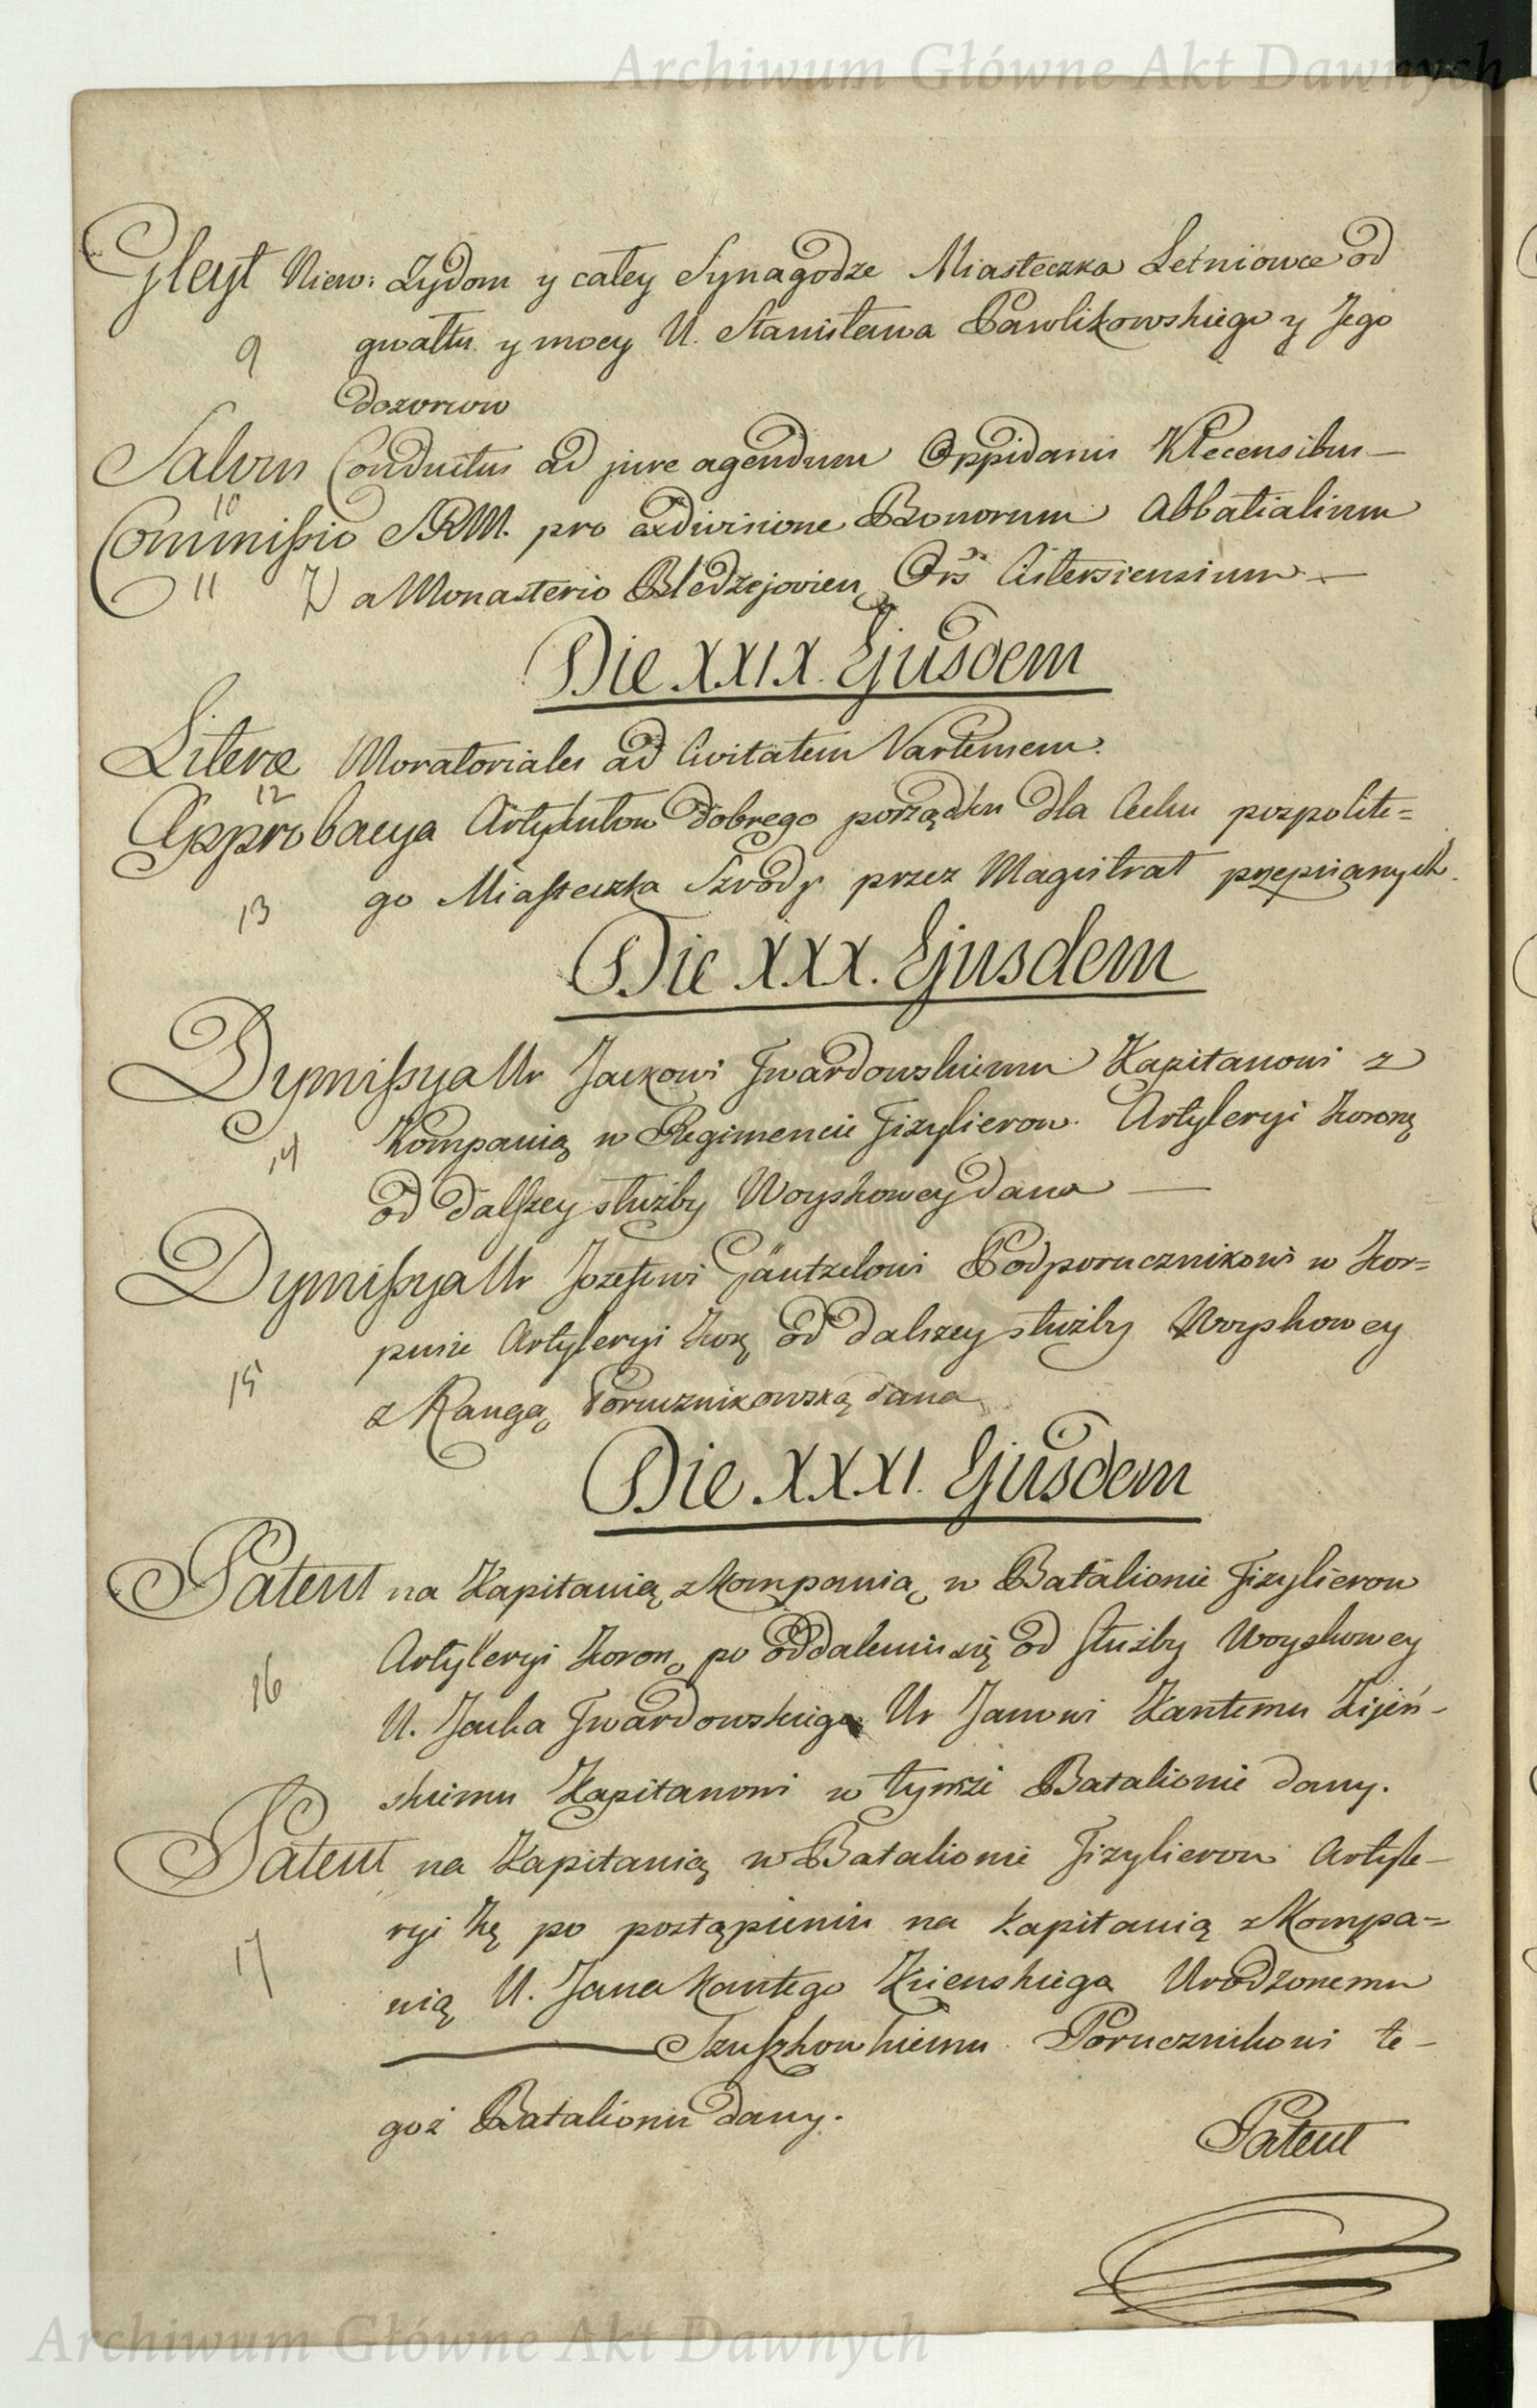 Archiwum Główne Akt Dawnych
Gleyt Niew: Żydom y całey Synagodze Miasteczka Letniowce od
9 gwałtu y mocy U. Stanisława Pawlikowskiego y Jego
dozorcow
Salvus Conductus ad jure agendum Oppidanis Klecensibus —
10
Commissio S.R.M. pro exdivisione Bonorum Abbatialium
11 a Monasterio Bledzejovien Ord̄s Cisterciensium —
Die XXIX. Ejusdem
Literæ Moratoriales ad Civitatem Vartensem.
12
Approbacya Artykułow dobrego porządku dla Cechu pospolite=
13 go Miasteczka Szrody przez Magistrat przepisanych.
Die XXX. Ejusdem
Dymissya Ur Jackowi Twardowskiemu Kapitanowi z
14 Kompanią w Regimencie Fizylierow Artyleryi Koronę
od dalszey służby Woyskowey dana —
Dymissya Ur Jozefowi Gäntzelowi Podporucznikowi w Kor=
15 pusie Artyleryi Korę od dalszey służby Woyskowey
z Rangą Porucznikowską dana
Die XXXI. Ejusdem
Patent na Kapitanią z Kompanią w Batalionie Fizylierow
16 Artyleryi Koron po oddaleniu się od służby Woyskowey
U. Jacka Twardowskiego Ur Janowi Kantemu Kijeń-
skiemu Kapitanowi w tymże Batalionie dany.
Patent na Kapitanią w Batalionie Fizylierow Artyle-
17 ryi Kę po postąpieniu na Kapitanią z Kompa=
nią U. Jana Kantego Kiienskiego Urodzonemu
— Szuszkowskiemu Porucznikowi te-
goż Batalionu dany.
Patent
Archiwum Główne Akt Dawnych